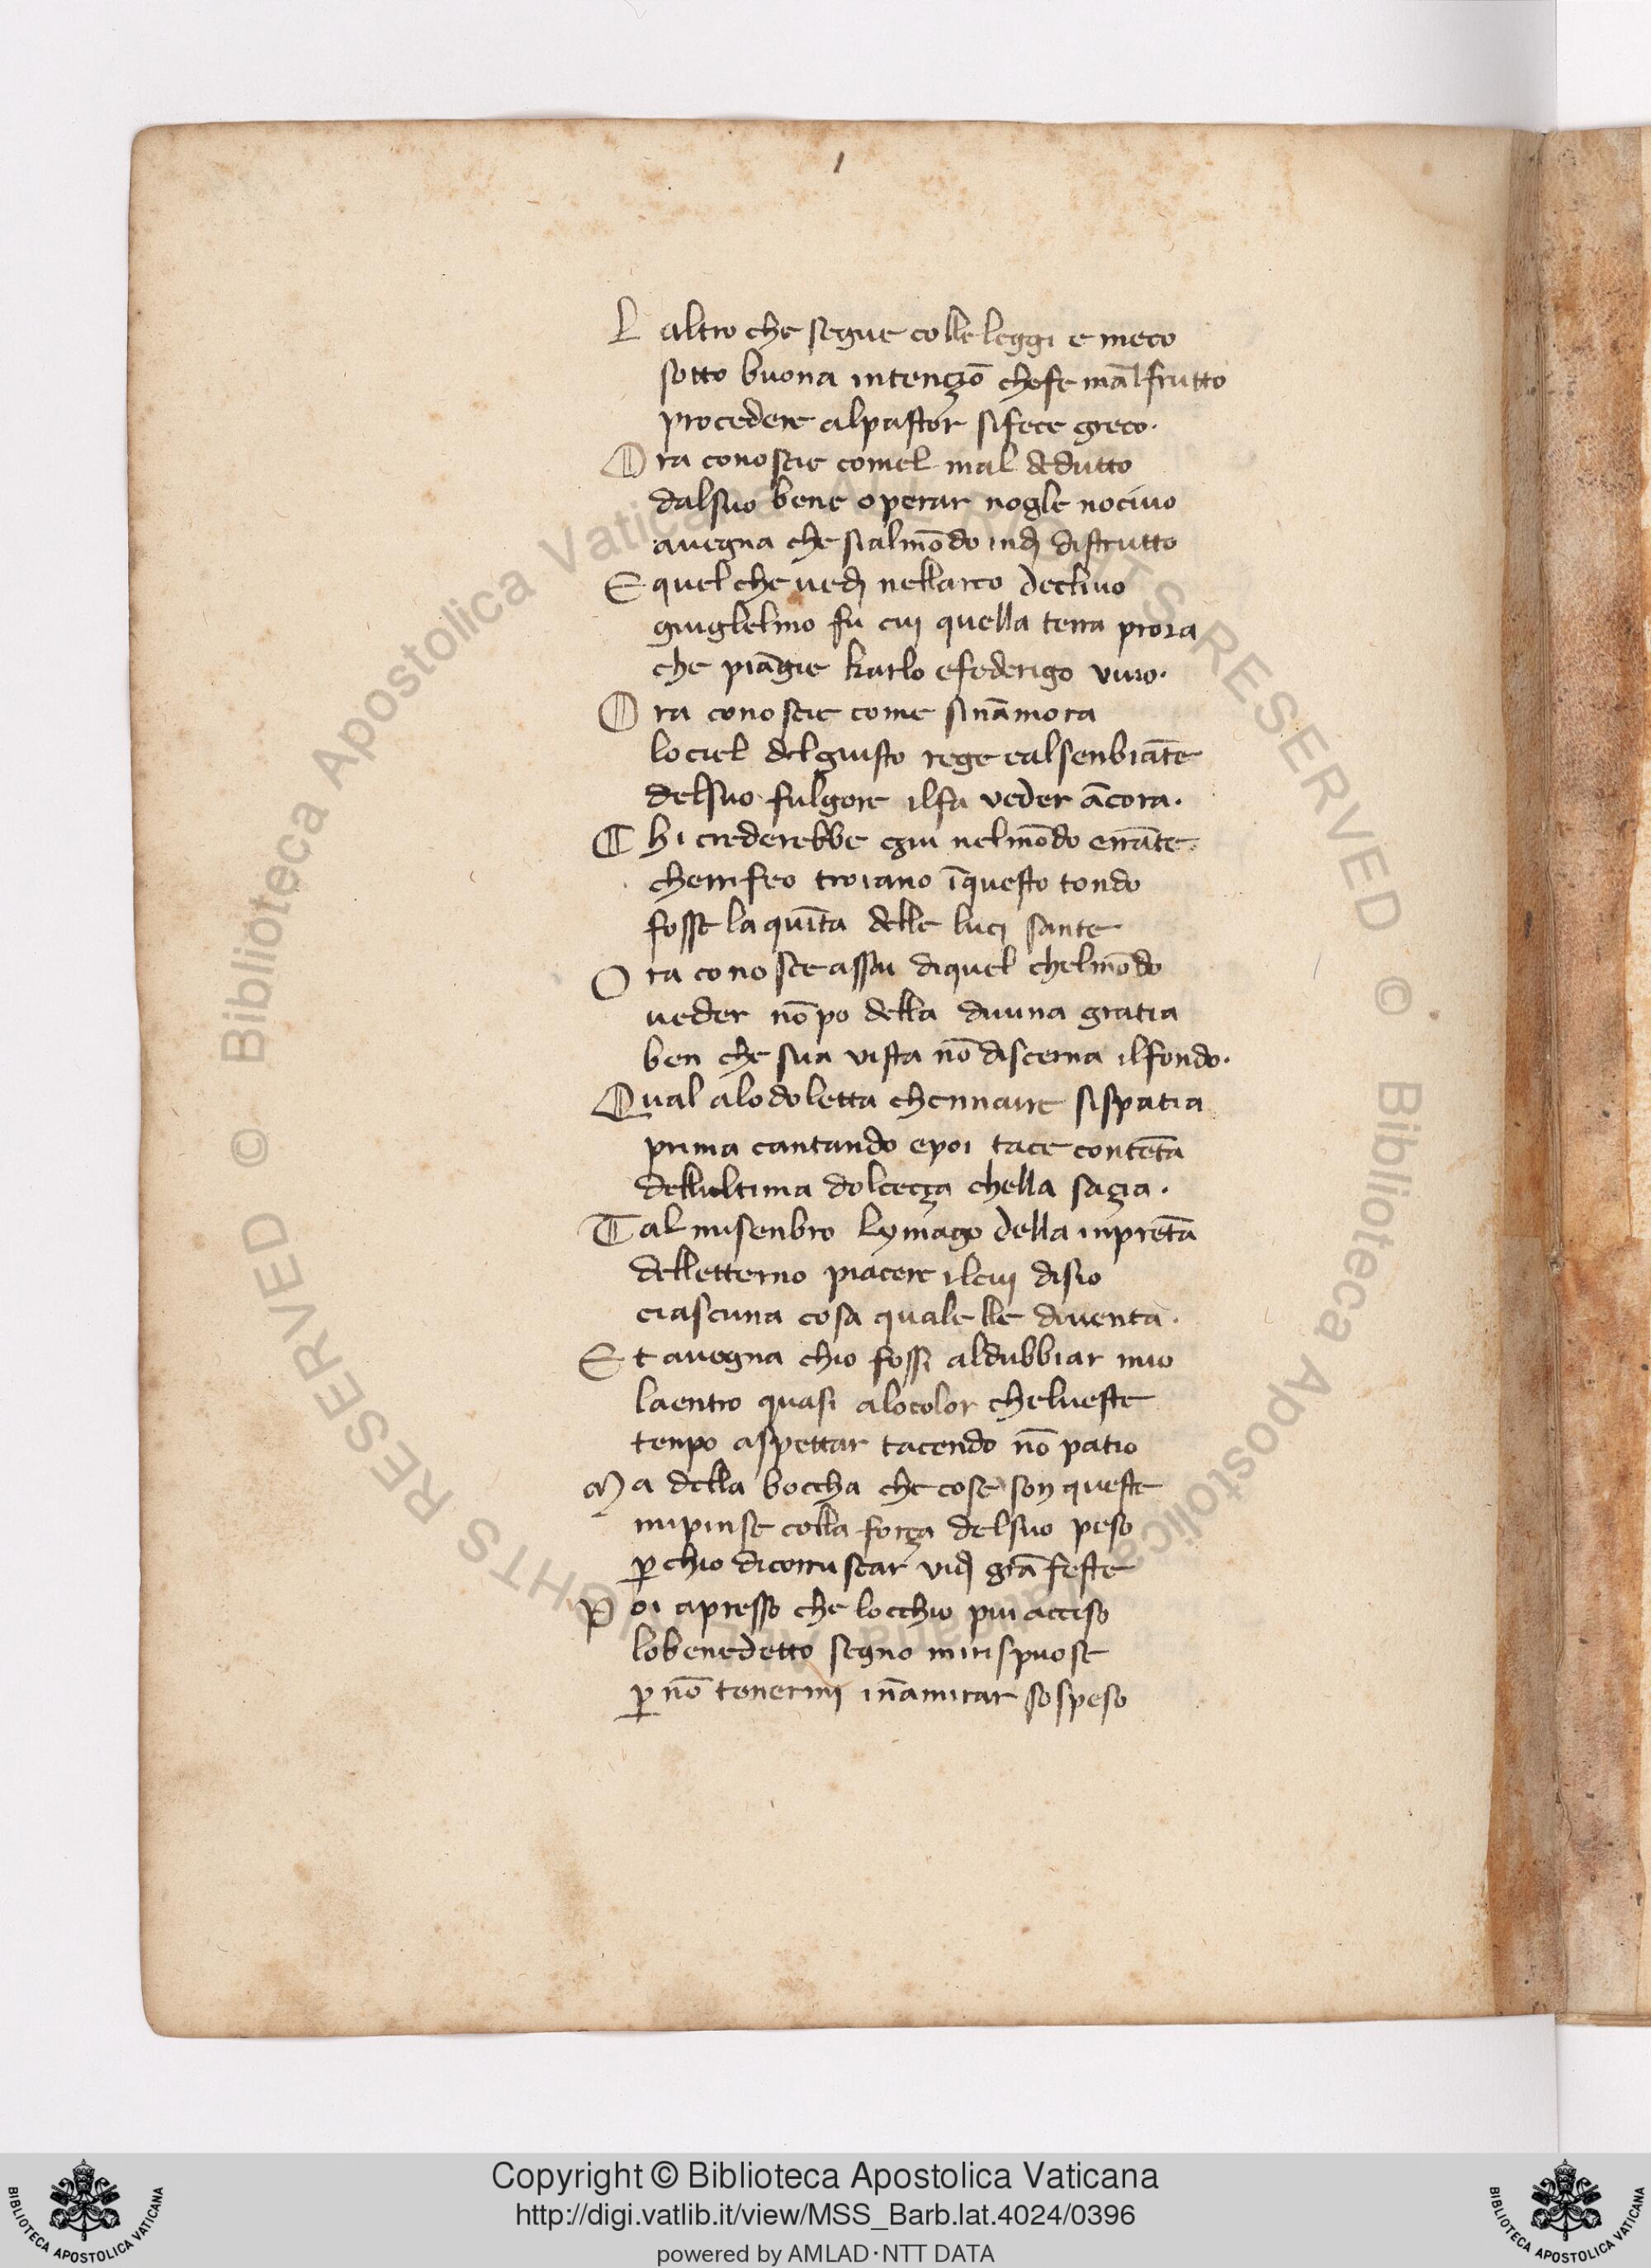 L altro che segue colle leggi e meco
sotto buona intenzõ chefe mãl frutto
procedere alpastor sifece greco.
O ra conoscie comel mal dedutto
dalsuo bene operar nogle nociuo
auegna che sialmõdo indj distrutto
E quel che uedj nellarco decliuo
guiglelmo fu cuj quella terra prora
che piãgie karlo efederigo viuo.
O ra conoscie come sinãmora
lociel delgiusto rege ealsenbiãte
delsuo fulgore ilfa veder ãcora.
C hi crederebbe qiu nelmõdo errãte
cherrifeo troiano ĩquesto tondo
fosse la quĩta delle lucj sante
O ra conosce assai diquel chelmõdo
ueder nõ po della diuina gratia
ben che sua vista nõ discerna ilfondo.
Qual alodoletta chennaire sispatia
prima cantando epoi tace contẽta
dellultima dolceçça chella sazia.
T al misenbro lymago della inprẽta
delletterno piacere ilcuj disio
ciascuna cosa quale lle diuenta.
E t auegna chio fossi aldubbiar mio
laentro quasi alocolor chelueste
tenpo aspettar tacendo nõ patio
M a della boccha che cose son queste
mipinse colla força delsuo peso
ꝑ chio dicorruscar vidj grã feste
P oi apresso che locchio piu acceso
lobenedetto segno mirispuose
ꝑ nõ tenermj inãmirar sospeso
Copyright © Biblioteca Apostolica Vaticana
http://digi.vatlib.it/view/MSS_Barb.lat.4024/0396
powered by AMLAD·NTT DATA
BIBLIOTECA APOSTOLICA VATICANA
BIBLIOTECA APOSTOLICA VATICANA